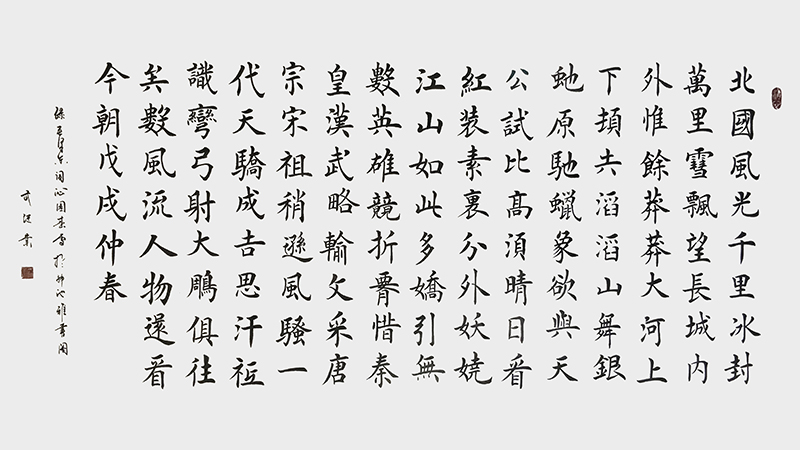 北國風光千里冰封
萬里雪飄望長城內
外惟餘莽莽大河上
下頓失滔滔山舞銀
虵原馳蠟象欲與天
公試比高須晴日看
紅装素裹分外妖嬈
江山如此多嬌引無
數英雄競折腰惜秦
皇漢武略輸文采唐
宗宋祖稍遜風騷一
代天驕成吉思汗祗
識彎弓射大鵰俱往
矣數風流人物還看
今朝戊戌仲春
沁园春雪於